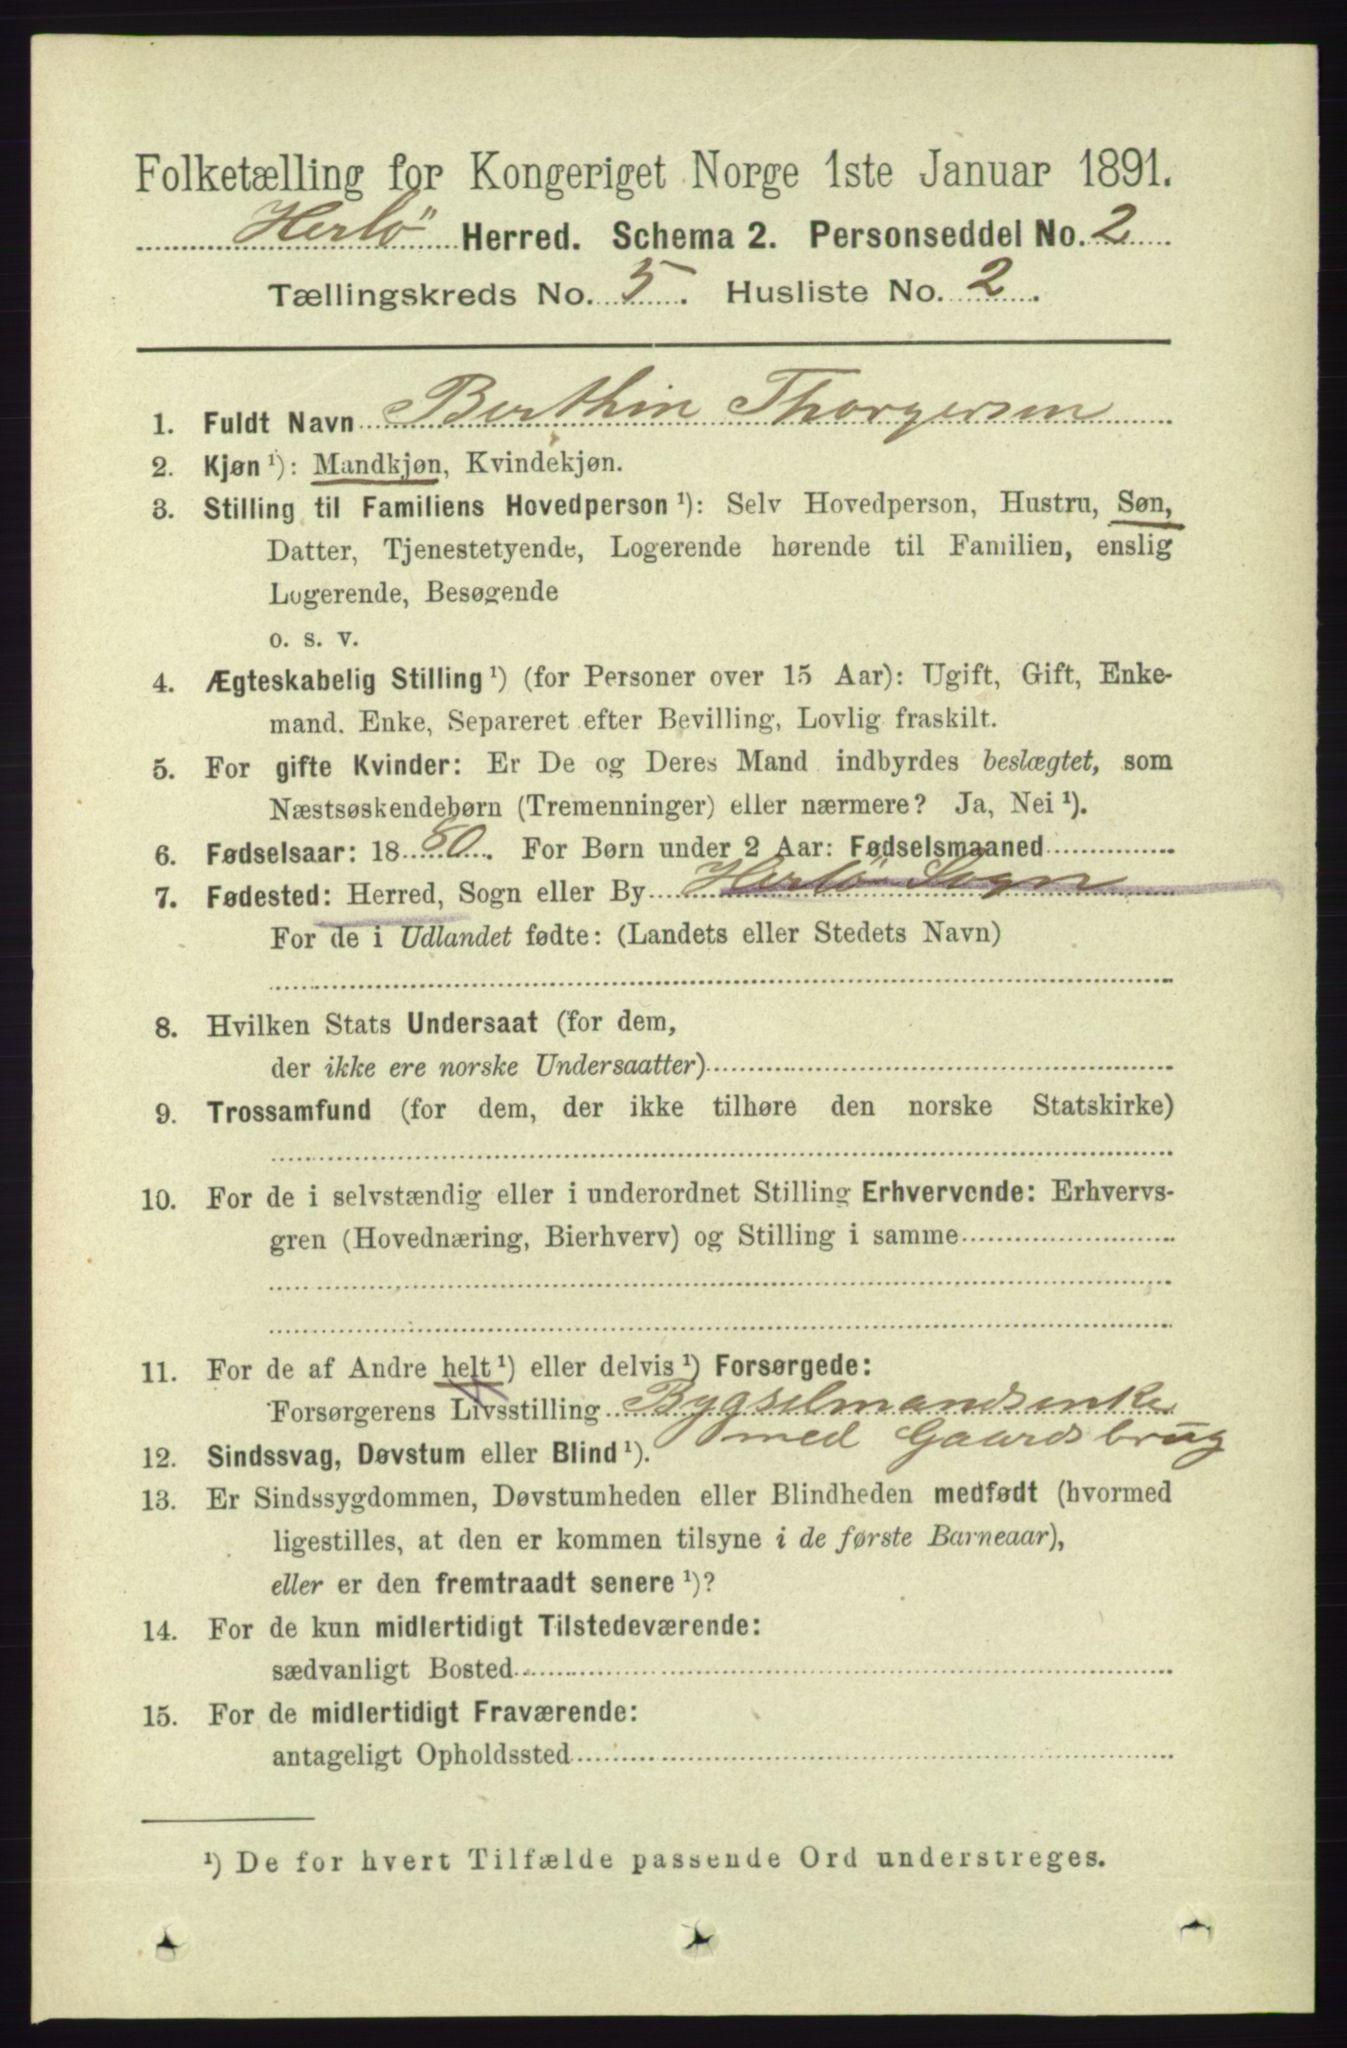 Folketælling for Kongeriget Norge 1ste Januar 1891.
Herlö Herred. Schema 2. Personseddel No. 2
Tællingskreds No. 5. Husliste No. 2.
1. Fuldt Navn Berthin Thorgersen
2. Kjøn ¹): Mandkjøn, Kvindekjøn.
3. Stilling til Familiens Hovedperson ¹): Selv Hovedperson, Hustru, Søn,
Datter, Tjenestetyende, Logerende hørende til Familien, enslig
Logerende, Besøgende
o. s. v.
4. Ægteskabelig Stilling ¹) (for Personer over 15 Aar): Ugift, Gift, Enke-
mand. Enke, Separeret efter Bevilling, Lovlig fraskilt.
5. For gifte Kvinder: Er De og Deres Mand indbyrdes beslægtet, som
Næstsøskendebørn (Tremenninger) eller nærmere? Ja, Nei ¹).
6. Fødselsaar: 1880. For Børn under 2 Aar: Fødselsmaaned
7. Fødested: Herred, Sogn eller By Herlö Sogn
For de i Udlandet fødte: (Landets eller Stedets Navn)
8. Hvilken Stats Undersaat (for dem,
der ikke ere norske Undersaatter)
9. Trossamfund (for dem, der ikke tilhøre den norske Statskirke)
10. For de i selvstændig eller i underordnet Stilling Erhvervende: Erhvervs-
gren (Hovednæring, Bierhverv) og Stilling i samme
11. For de af Andre helt ¹) eller delvis ¹) Forsørgede:
Forsørgerens Livsstilling Bygselmandsenke
med Gaardsbrug
12. Sindssvag, Døvstum eller Blind ¹).
13. Er Sindssygdommen, Døvstumheden eller Blindheden medfødt (hvormed
ligestilles, at den er kommen tilsyne i de første Barneaar),
eller er den fremtraadt senere ¹)?
14. For de kun midlertidigt Tilstedeværende:
sædvanligt Bosted
15. For de midlertidigt Fraværende:
antageligt Opholdssted
¹) De for hvert Tilfælde passende Ord understreges.